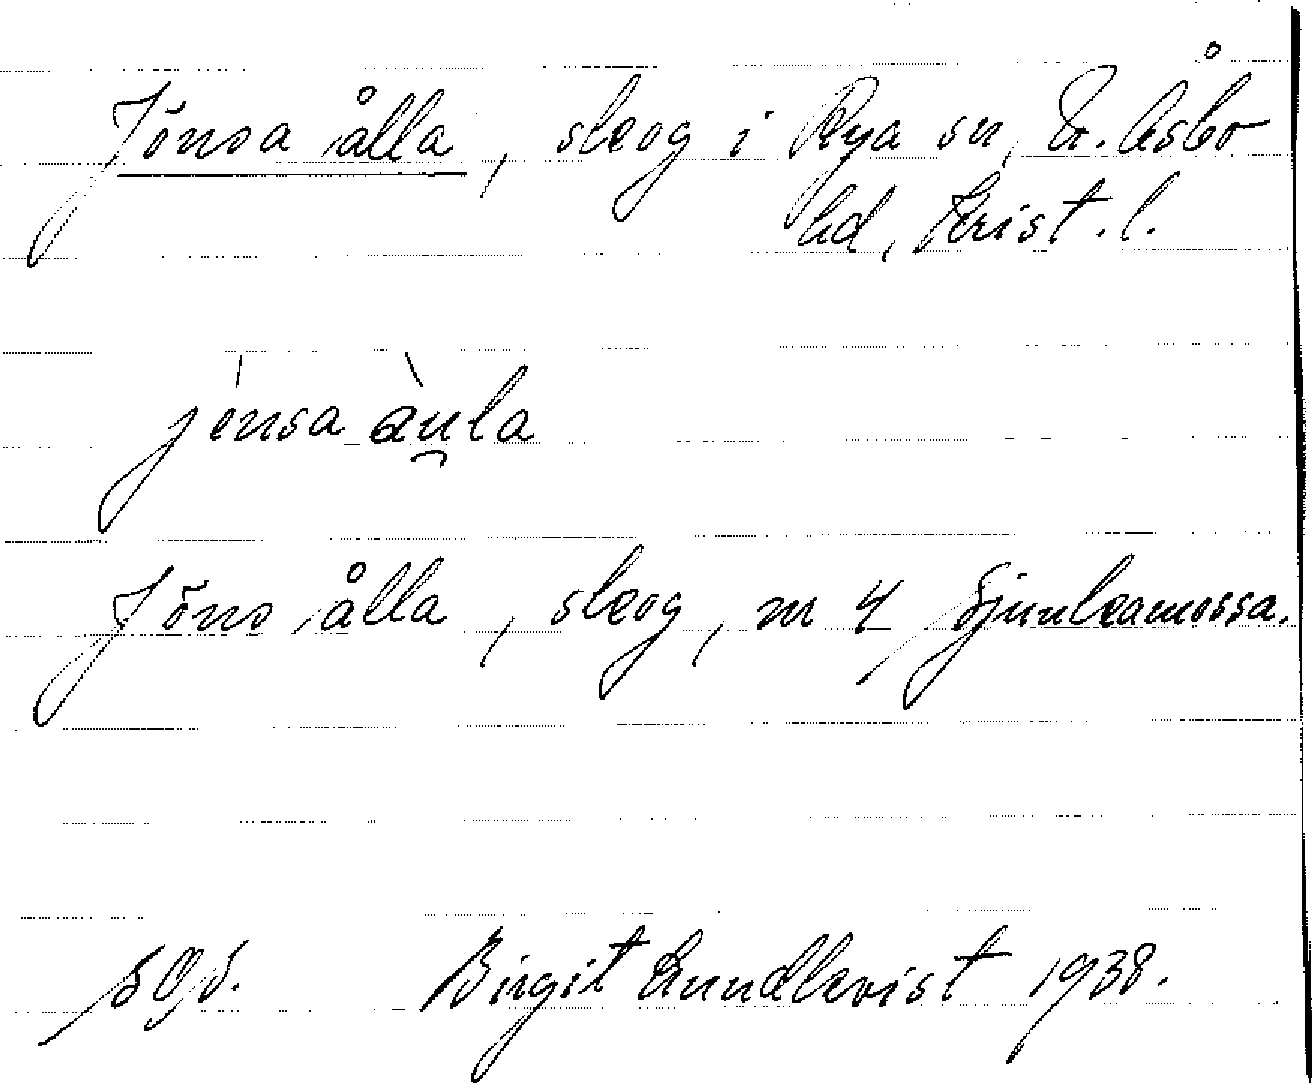 Jönsa ålla, skog i Rya sn, N. Åsbo
hd, Krist. l.
jönsa àu̯la
Jöns ålla, skog, nr 4 Sjunkamossa.
SOS. Birgit Lundkvist 1938.